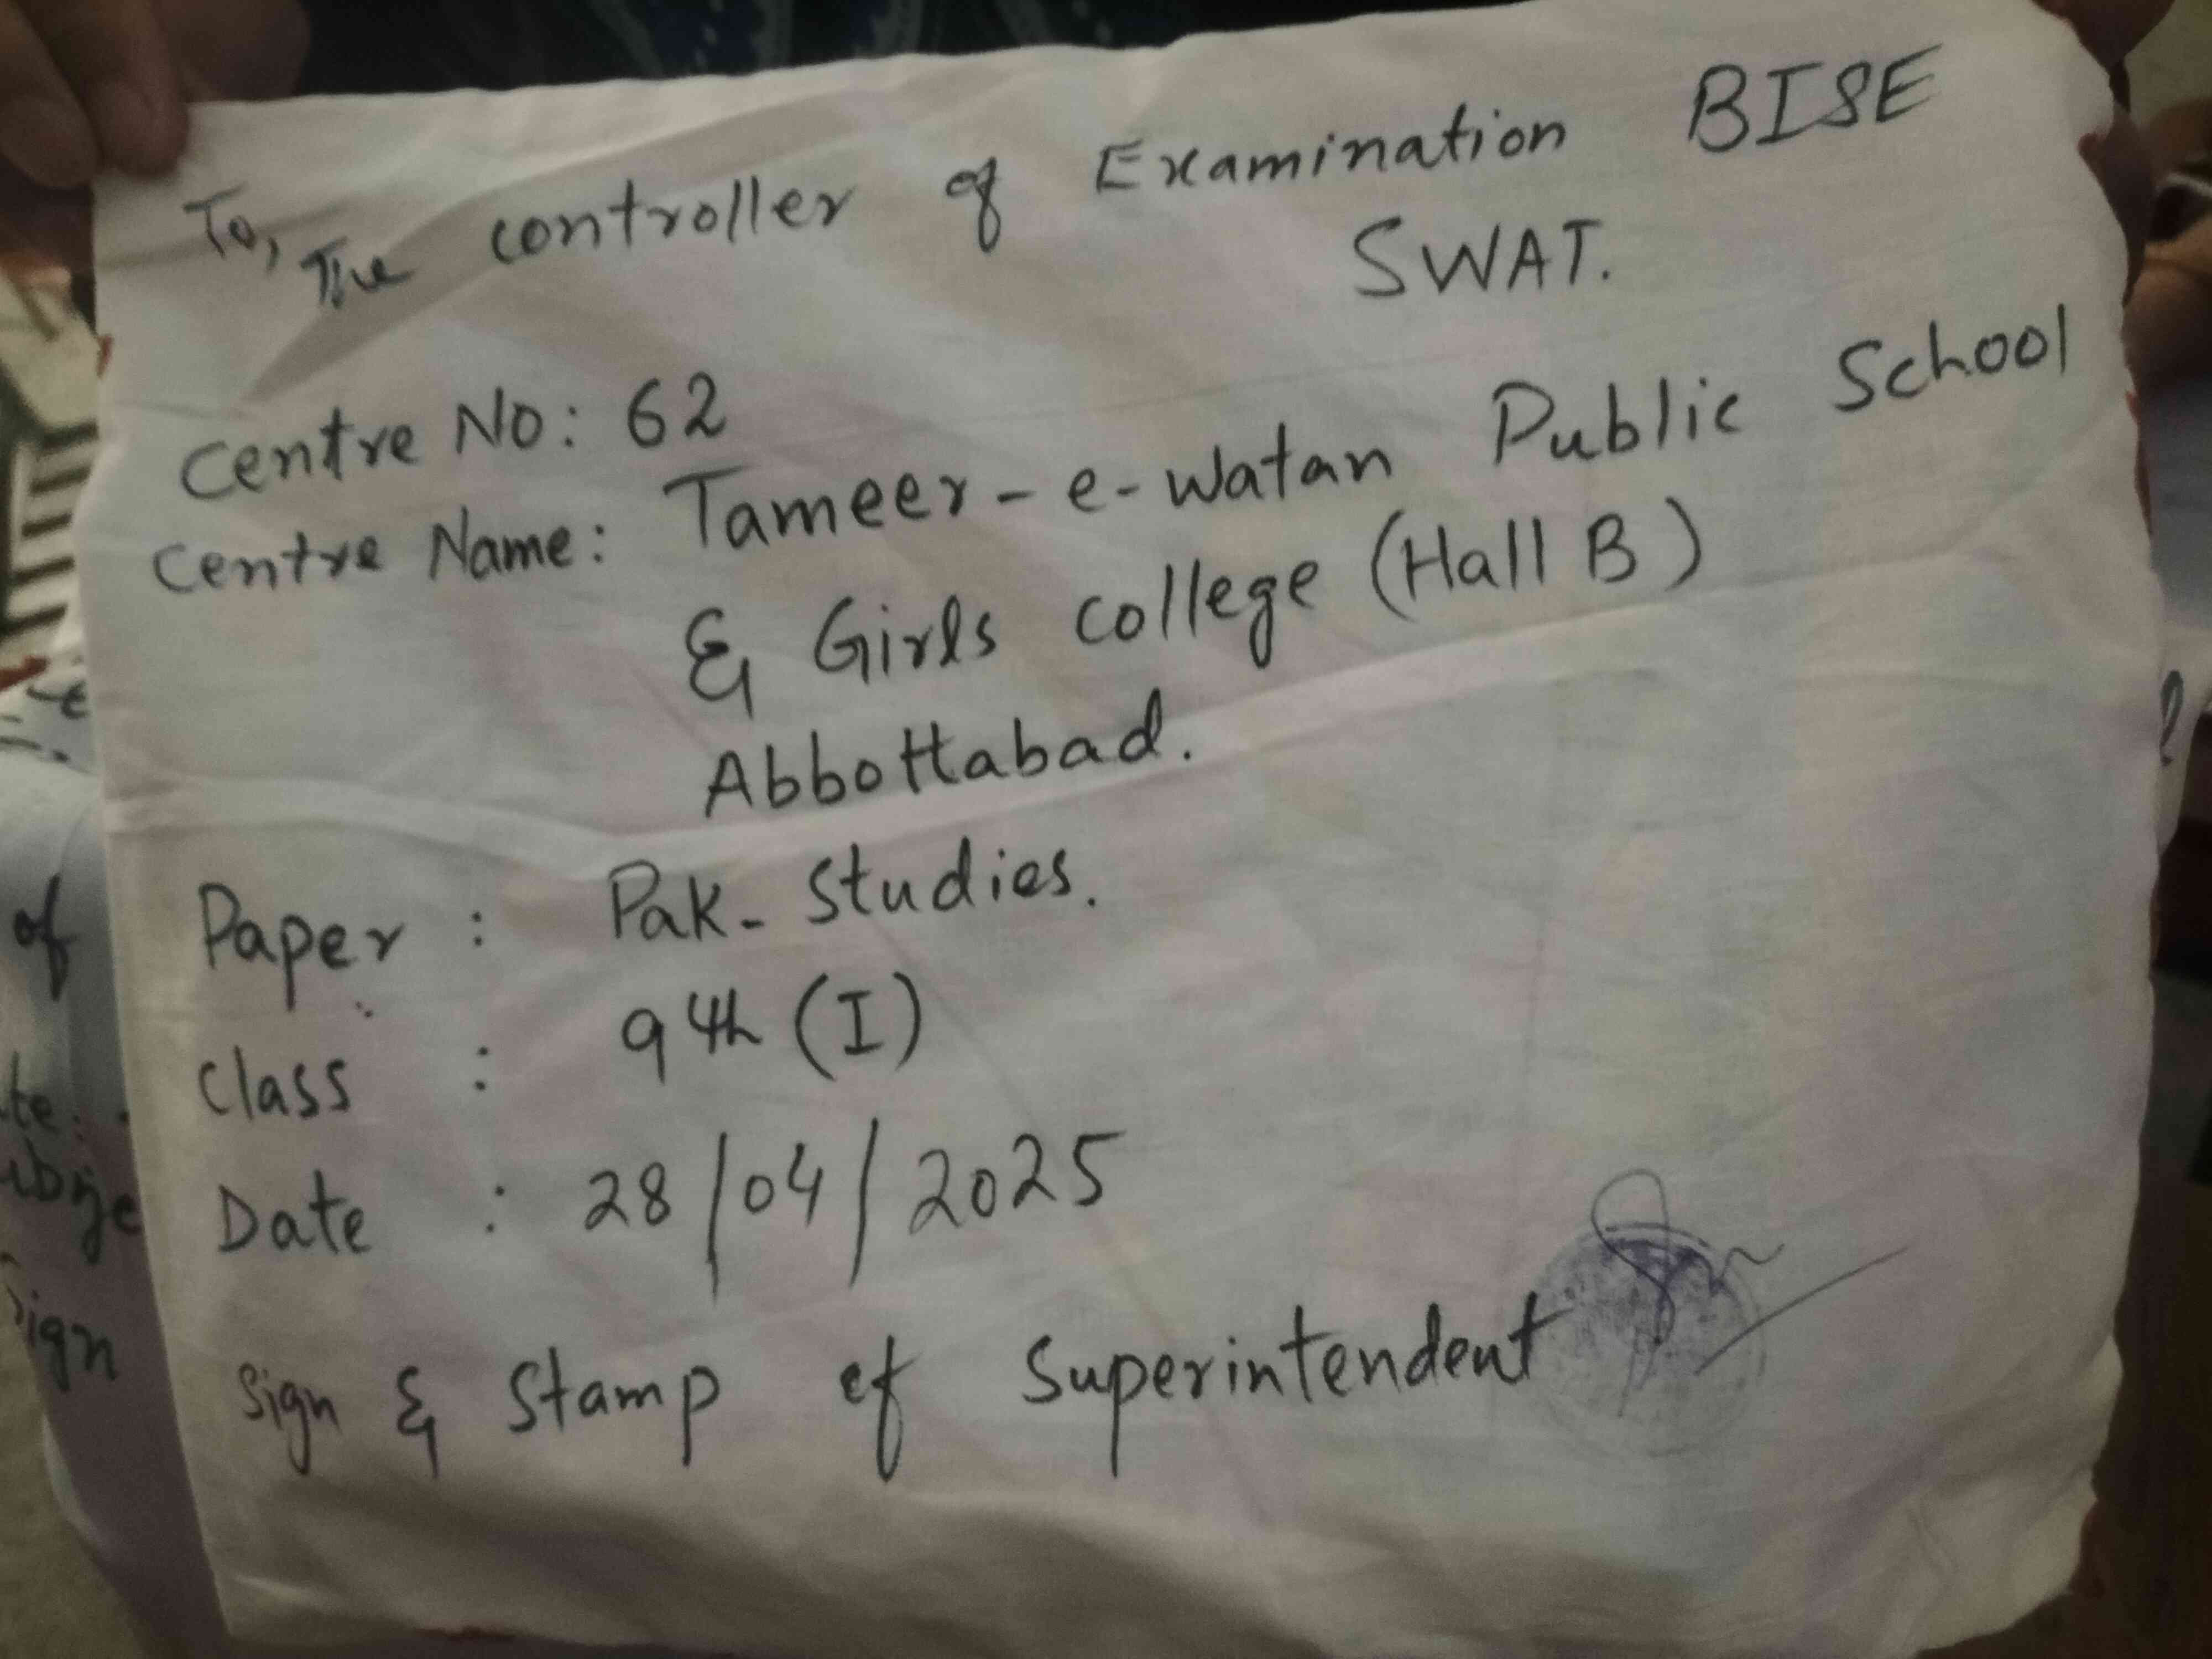 To,
The controller of Examination BISE
SWAT.
Centre No: 62
Centre Name: Tameer-e-watan Public School
& Girls college (Hall B)
Abbottabad.
Paper : Pak-Studies.
Class : 9th (I)
Date : 28/04/2025
Sign & Stamp of Superintendent
of
sign